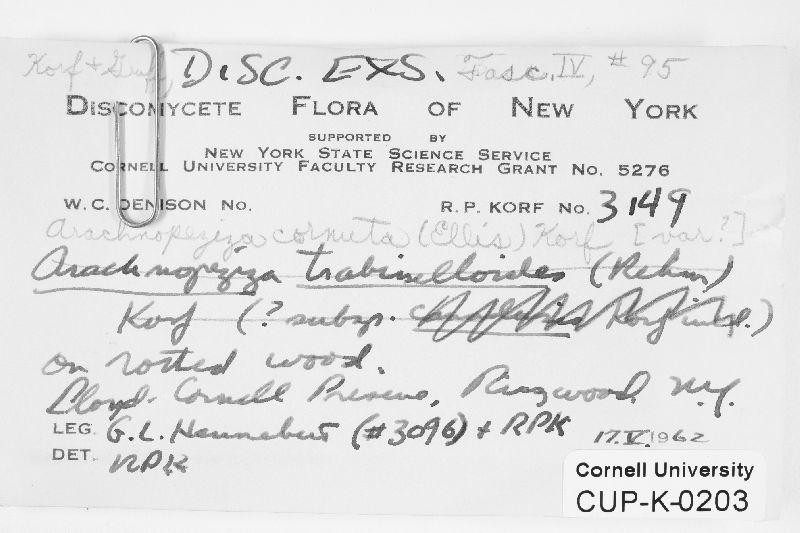 Korf + Gruff, DISC. EXS. Fasc. IV, # 95
DISCOMYCETE FLORA OF NEW YORK
SUPPORTED BY
NEW YORK STATE SCIENCE SERVICE
CORNELL UNIVERSITY FACULTY RESEARCH GRANT NO. 5276
W. C. DENISON NO. R. P. KORF NO. 3149
Arachnopeziza cornuta (Ellis) Korf [var.?]
Arachnopeziza trabinelloides (Rehm)
Korf (? subsp. Korf ined.)
on rotted wood.
Lloyd-Cornell Preserve, Ringwood, N.Y.
LEG. G. L. Hennebert (#3096) + RPK 17.V.1962
DET. RPK
Cornell University
CUP-K-0203